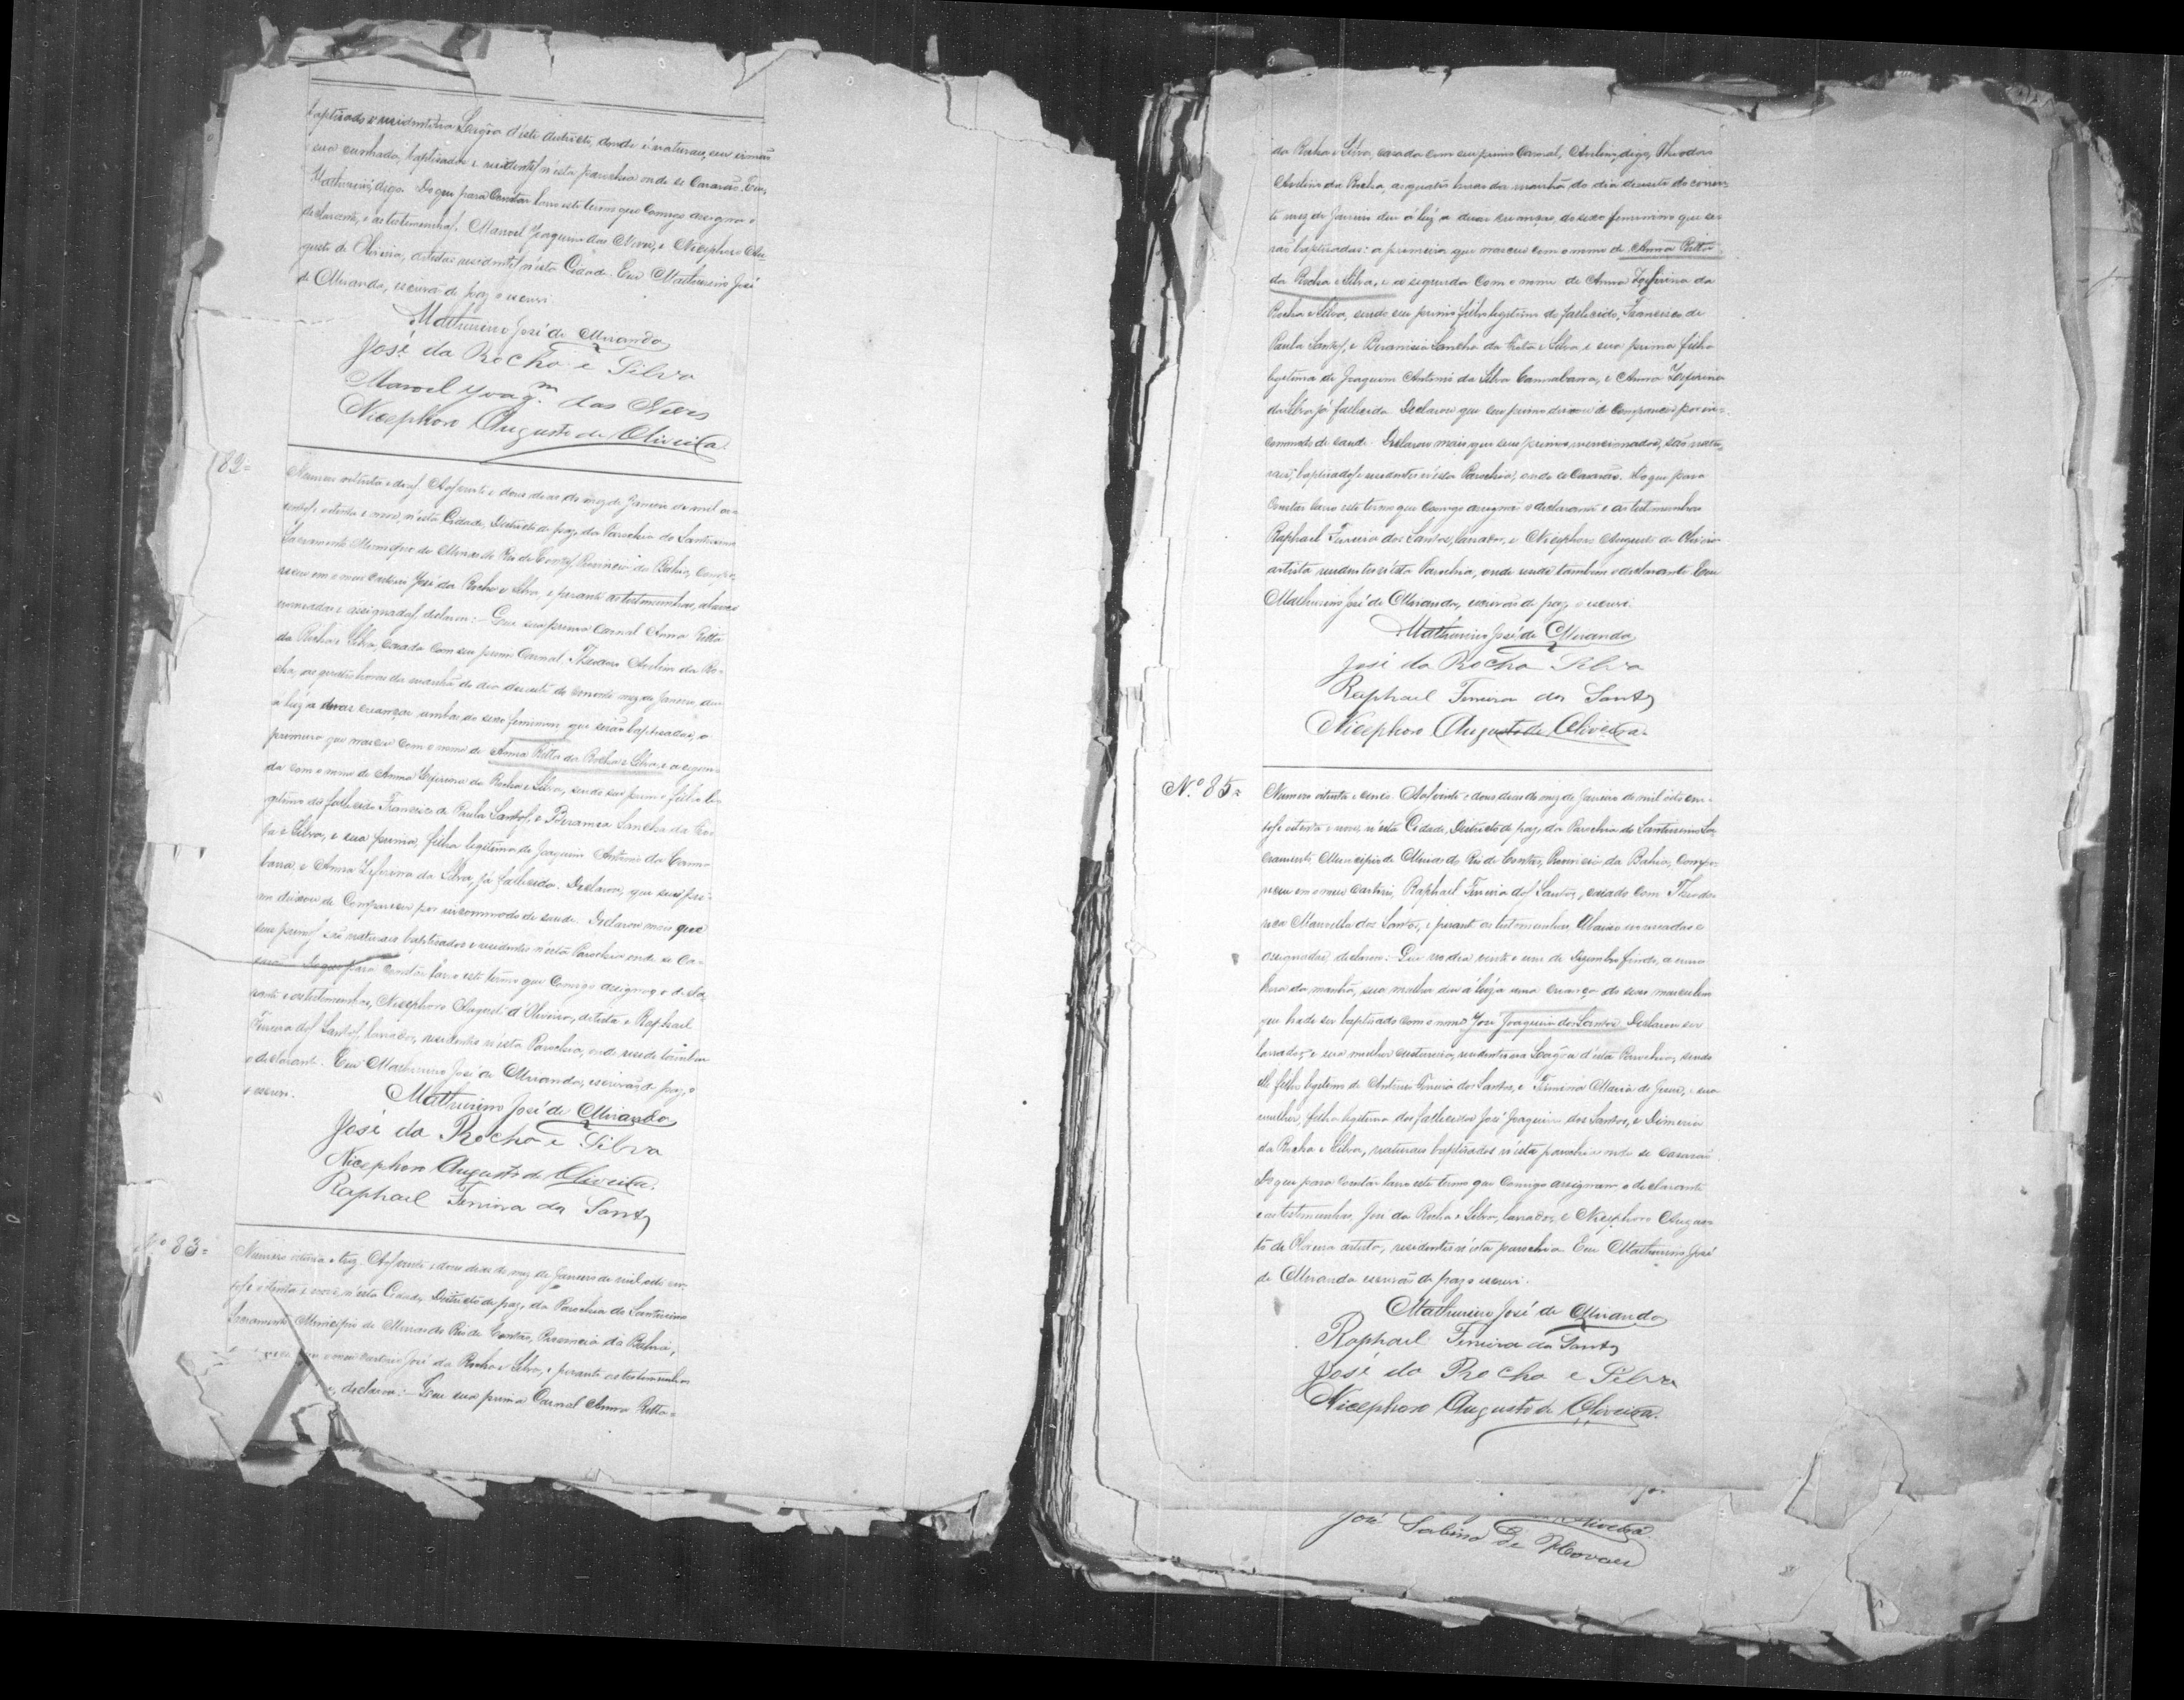 baptisado e residente na Lagôa d'este districto, donde é natural, seu irmão
e sua cunhada, baptisados e residentes n'esta parochia onde se casarão. Eu,
Mathurino, digo. Do que para constar lavro este termo que comigo assignão o
declarante, e as testemunhas Manoel Joaquim das Neves, e Nicephoro Au-
gusto de Oliveira, artistas residentes n'esta Cidade. Eu Mathurino José
de Miranda, escrivão de paz o escrevi.
Mathurino José de Miranda
José da Rocha e Silva
Manoel Joaqm. das Neves
Nicephoro Augusto de Oliveira.
82=
Numero oitenta e dous. Aos vinte e dous dias do mez de Janeiro de mil oi-
centos e oitenta e nove, n'esta Cidade, Districto de paz, da Parochia do Santissimo
Sacramento Municipio de Minas do Rio de Contas, Provincia da Bahia, compa-
receu em o meu Cartorio José da Rocha e Silva, e perante as testemunhas, abaixo
nomeadas e assignadas, declarou:- Que sua prima Carnal Anna Ritta
da Rocha e Silva, casada com seu primo Carnal Theodoro Avelino da Ro-
cha, as quatro horas da manhã do dia dezesete do corrente mez de Janeiro, deu
á luz a duas crianças ambas do sexo feminino que serão baptisadas, a
primeira que nasceu com o nome de Anna Ritta da Rocha e Silva, e a segun-
da com o nome de Anna Zeferina da Rocha e Silva, sendo seu primo filho le-
gitimo do fallecido Francisco de Paula Santos, e Sancha da
e Silva, e sua prima, filha legitima de Joaquim Antonio da Canna
barra, e Anna Zeferina da Silva, já fallecida. Declarou, que seu pri-
mo deixou de comparecer por incommodo de saude. Declarou mais que
seus primos são naturaes baptisados e residentes n'esta Parochia onde se ca-
sarão. Do que para constar lavro este termo que comigo assignão o decla-
rante e as testemunhas, Nicephoro Augusto d'Oliveira, artista e Raphael
Ferreira dos Santos, lavrador, residentes n'esta Parochia, onde reside tambem
o declarante. Eu Mathurino José de Miranda, escrivão de paz, o
o escrevi.
Mathurino José de Miranda
José da Rocha e Silva
Nicephoro Augusto de Oliveira.
Raphael Ferreira dos Santos
No. 83=
Numero oitenta e trez. Aos vinte e dous dias do mez de Janeiro de mil oito cen-
tos e oitenta e nove, n'esta Cidade, Districto de paz, da Parochia do Santissimo
Sacramento Municipio de Minas do Rio de Contas, Provincia da Bahia,
em o meu cartorio José da Rocha e Silva, e perante as testemunhas
declarou:- Que sua prima Carnal Anna Ritta=
da Rocha e Silva, casada com seu primo Carnal, Avelino, digo, Theodoro
Avelino da Rocha, as quatro horas da manhã do dia dezesete do corren-
te mez de Janeiro deu á luz a duas crianças, do sexo feminino que se-
rão baptisadas: a primeira que nasceu com o nome de Anna Ritta
da Rocha e Silva, e a segunda com o nome de Anna Zeferina da
Rocha e Silva, sendo seu primo filho legitimo do fallecido, Francisco de
Paula Santos, e Sancha da e Silva e sua prima filha
legitima de Joaquim Antonio da Silva Cannabarra, e Anna Zeferina
da Silva já fallecida. Declarou que seu primo deixou de comparecer por in-
commodo de saude. Declarou mais, que seus primos, mencionados, são natu-
raes, baptisados e residentes n'esta Parochia, onde se casarão. Do que para
constar lavro este termo que comigo assignão o declarante e as testemunhas
Raphael Ferreira dos Santos, lavrador, e Nicephoro Augusto de Oliveira
artista residentes n'esta Parochia, onde reside tambem o declarante. Eu
Mathurino José de Miranda, escrivão de paz o escrevi.
Mathurino José de Miranda
José da Rocha Silva
Raphael Ferreira dos Santos
Nicephoro Augusto de Oliveira.
N.o 85=
Numero oitenta e cinco. Aos vinte e dous dias do mez de Janeiro de mil oito cen-
tos e oitenta e nove, n'esta Cidade, Districto de paz, da Parochia do Santissimo Sa-
cramento Municipio de Minas do Rio de Contas, Provincia da Bahia, compa-
receu em o meu cartorio, Raphael Ferreira dos Santos, casado com Theodo-
rica dos Santos, e perante as testemunhas abaixo nomeadas e
assignadas declarou:- Que no dia vinte e um de Dezembro findo, a uma
hora da manhã, sua mulher deu á luz a uma criança do sexo masculino
que hade ser baptisado com o nome José Joaquim dos Santos. Declarou ser
lavrador e sua mulher costureira, residentes na Lagôa d'esta Parochia, sendo
elle filho legitimo de Antonio Ferreira dos Santos, e Maria de Jesus, e sua
mulher, filha legitima dos fallecidos José Joaquim dos Santos, e
da Rocha e Silva, naturaes baptisados n'esta parochia onde se casarão.
Do que para constar lavro este termo que comigo assignam o declarante
e as testemunhas, José da Rocha e Silva, lavrador, e Nicephoro Augus-
to de Oliveira artista, residentes n'esta parochia. Eu Mathurino José
de Miranda escrivão de paz o escrevi.
Mathurino José de Miranda
Raphael Ferreira dos Santos
José da Rocha e Silva
Nicephoro Augusto de Oliveira.
Oliveira
José Sabino de Novaes